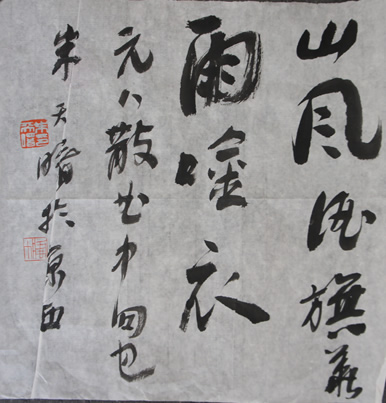 山风酒旗
雨衣
元人散曲中句也
朱天曙於京西